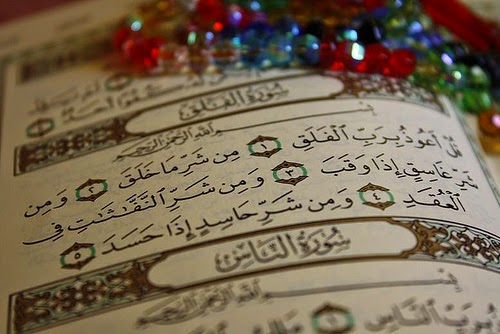 كُفُوًا أَحَدٌ
سُورَةُ الْفَلَقِ
بِسْمِ اللَّهِ الرَّحْمَٰنِ الرَّحِيمِ
قُلْ أَعُوذُ بِرَبِّ الْفَلَقِ ١ مِن شَرِّ مَا خَلَقَ ٢ وَمِن
شَرِّ غَاسِقٍ إِذَا وَقَبَ ٣ وَمِن شَرِّ النَّفَّٰثَٰتِ فِي
الْعُقَدِ ٤ وَمِن شَرِّ حَاسِدٍ إِذَا حَسَدَ ٥
سُورَةُ النَّاسِ
بِسْمِ اللَّهِ الرَّحْمَٰنِ الرَّحِيمِ
بِرَبِّ النَّاسِ ١